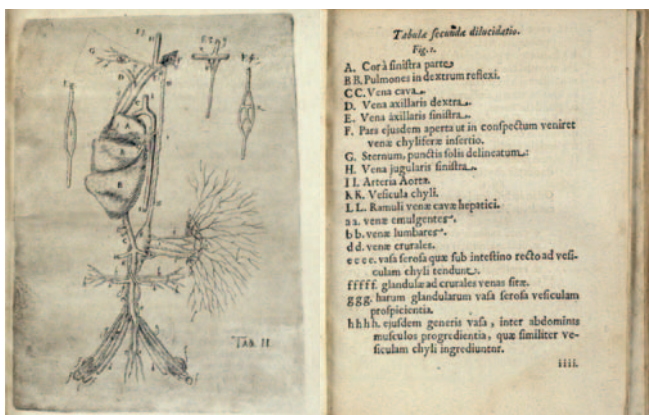 TAB. II
Tabulæ secundæ dilucidatio.
Fig. 1.
A. Cor à sinistra parte.
B B. Pulmones in dextrum reflexi.
C C. Vena cava.
D. Vena axillaris dextra.
E. Vena axillaris sinistra.
F. Pars ejusdem aperta ut in conspectum veniret
venæ chyliferæ insertio.
G. Sternum, punctis solis delineatum.
H. Vena jugularis sinistra.
I I. Arteria Aorta.
K K. Vesicula chyli.
L L. Ramuli venæ cavæ hepatici.
a a. venæ emulgentes.
b b. venæ lumbares.
d d. venæ crurales.
e e e e. vasa serosa quæ sub intestino recto ad vesi-
culam chyli tendunt.
f f f f f. glandulæ ad crurales venas sitæ.
g g g. harum glandularum vasa serosa vesiculam
prospicientia.
h h h h. ejusdem generis vasa, inter abdominis
musculos progredientia, quæ similiter ve-
siculam chyli ingrediuntur.
i i i i.